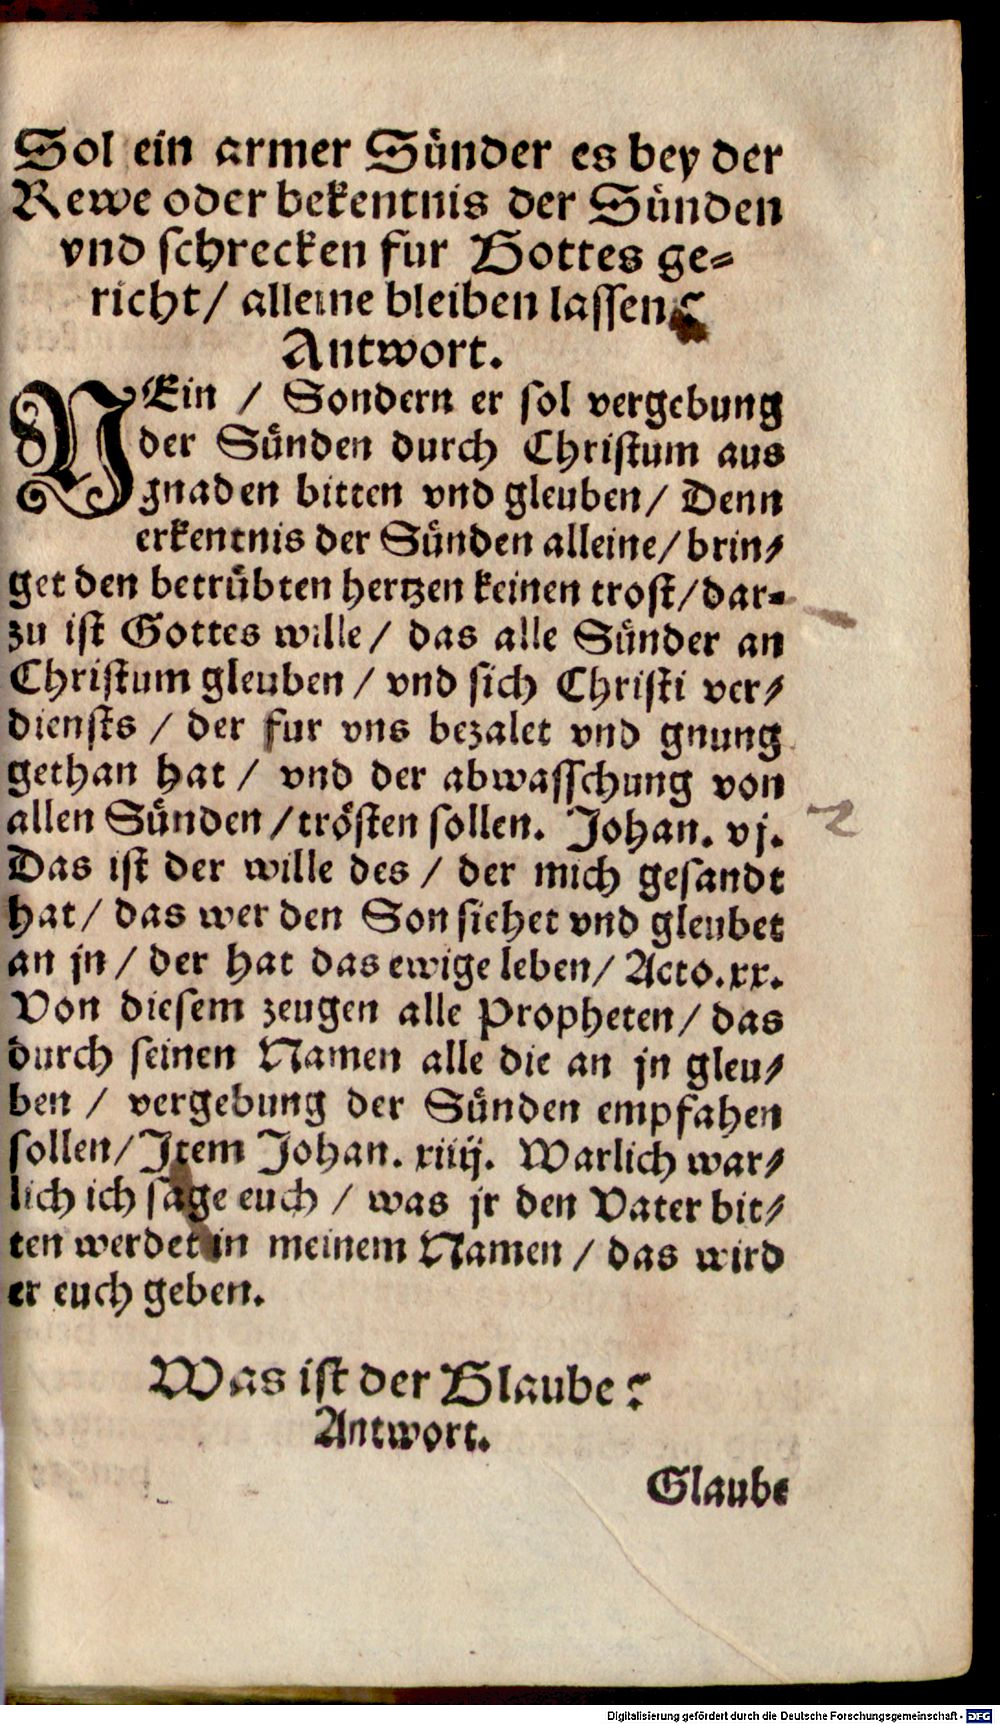 Sol ein armer Sünder es bey der
Rewe oder bekentnis der Sünden
vnd schrecken fur Gottes ge-
richt/ alleine bleiben lassen?
Antwort.
NEin / Sondern er sol vergebung
der Sünden durch Christum aus
gnaden bitten vnd gleuben/ Denn
erkentnis der Sünden alleine/ brin-
get den betrübten hertzen keinen trost/ dar-
zu ist Gottes wille/ das alle Sünder an
Christum gleuben/ vnd sich Christi ver-
diensts / der fur vns bezalet vnd gnung
gethan hat / vnd der abwasschung von
allen Sünden/ trösten sollen. Johan. vj.
Das ist der wille des / der mich gesandt
hat/ das wer den Son siehet vnd gleubet
an jn / der hat das ewige leben/ Acto. xx.
Von diesem zeugen alle Propheten/ das
durch seinen Namen alle die an jn gleu-
ben / vergebung der Sünden empfahen
sollen/ Item Johan. xiiij. Warlich war-
lich ich sage euch / was jr den Vater bit-
ten werdet in meinem Namen / das wird
er euch geben.
Was ist der Glaube?
Antwort.
Glaube
Digitalisierung gefördert durch die Deutsche Forschungsgemeinschaft - DFG